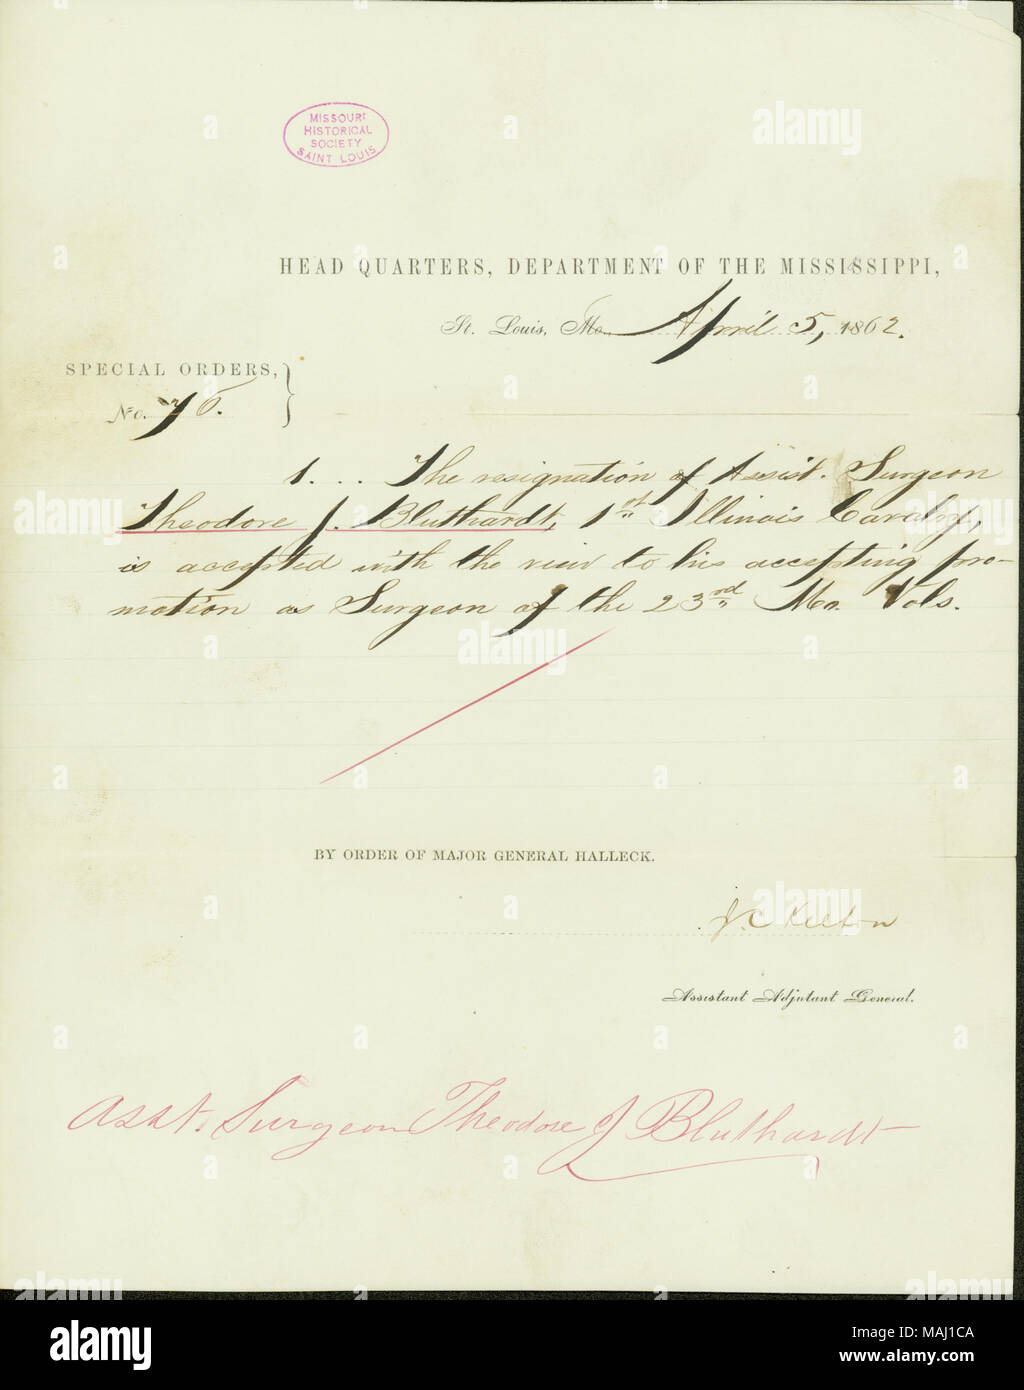 MISSOURI
HISTORICAL
SOCIETY
SAINT LOUIS
HEAD QUARTERS, DEPARTMENT OF THE MISSISSIPPI,
St. Louis, Mo. April 5, 1862.
SPECIAL ORDERS,
No. 76.
1... The resignation of Assist. Surgeon
Theodore J. Bluthardt, 1st Illinois Cavalry,
is accepted with the view to his accepting pro-
motion as Surgeon of the 23rd Mo. Vols.
BY ORDER OF MAJOR GENERAL HALLECK.
J.C. Kelton
Assistant Adjutant General.
Asst. Surgeon Theodore J Bluthardt
alamy
Image ID: MAJ1CA
www.alamy.com